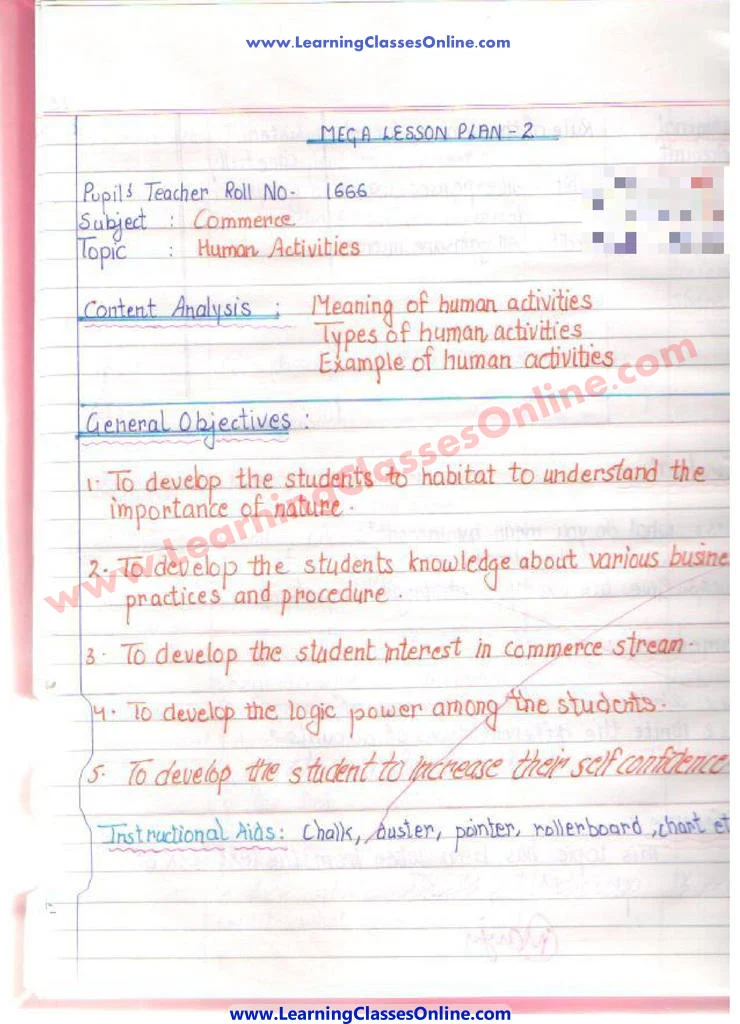 www.LearningClassesOnline.com
MEGA LESSON PLAN - 2
Pupil's Teacher Roll No- 1666
Subject : Commerce
Topic : Human Activities
Content Analysis : Meaning of human activities
Types of human activities
Example of human activities
General Objectives :
1. To develop the students to habitat to understand the
importance of nature.
2. To develop the students knowledge about various busine
practices and procedure.
3. To develop the student interest in commerce stream.
4. To develop the logic power among the students.
5. To develop the student to increase their self confidence
Instructional Aids: Chalk, duster, pointer, rollerboard, chart et
www.LearningClassesOnline.com
www.LearningClassesOnline.com